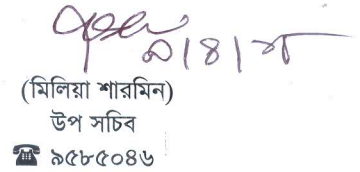 (মিলিয়া শারমিন)
উপ সচিব
☎ ৯৫৮৫০৪৬